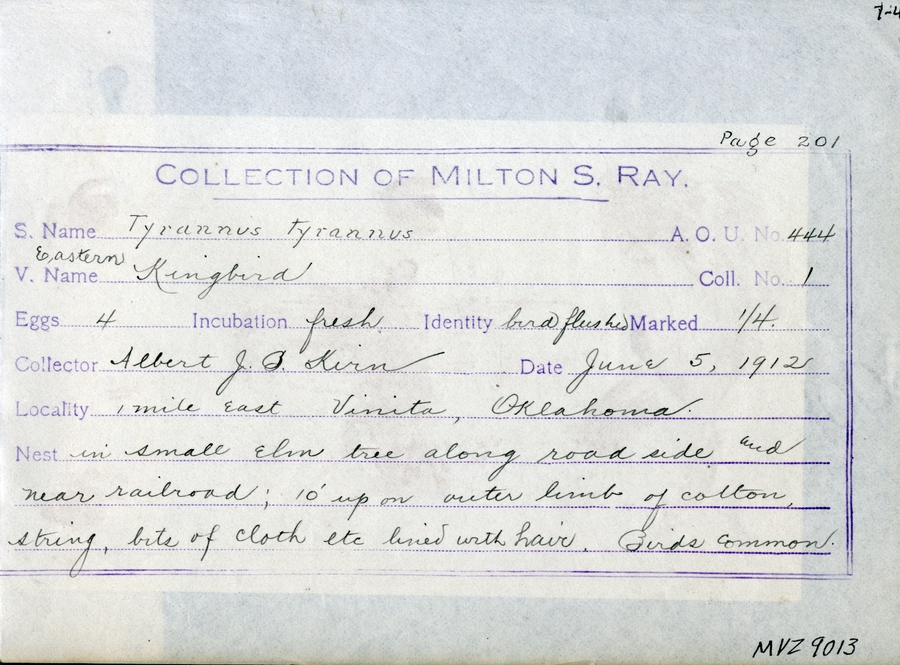 7-4
Page 201
COLLECTION OF MILTON S. RAY.
S. Name Tyrannus tyrannus A. O. U. No. 444
Eastern
V. Name Kingbird Coll. No. 1
Eggs 4 Incubation fresh. Identity bird flushed Marked 1/4.
Collector Albert J. B. Kirn Date June 5, 1912
Locality 1 mile East Vinita, Oklahoma.
Nest in small Elm tree along road side and
near railroad; 10' up on outer limb of cotton,
string, bits of cloth etc lined with hair. Birds common.
MVZ 9013